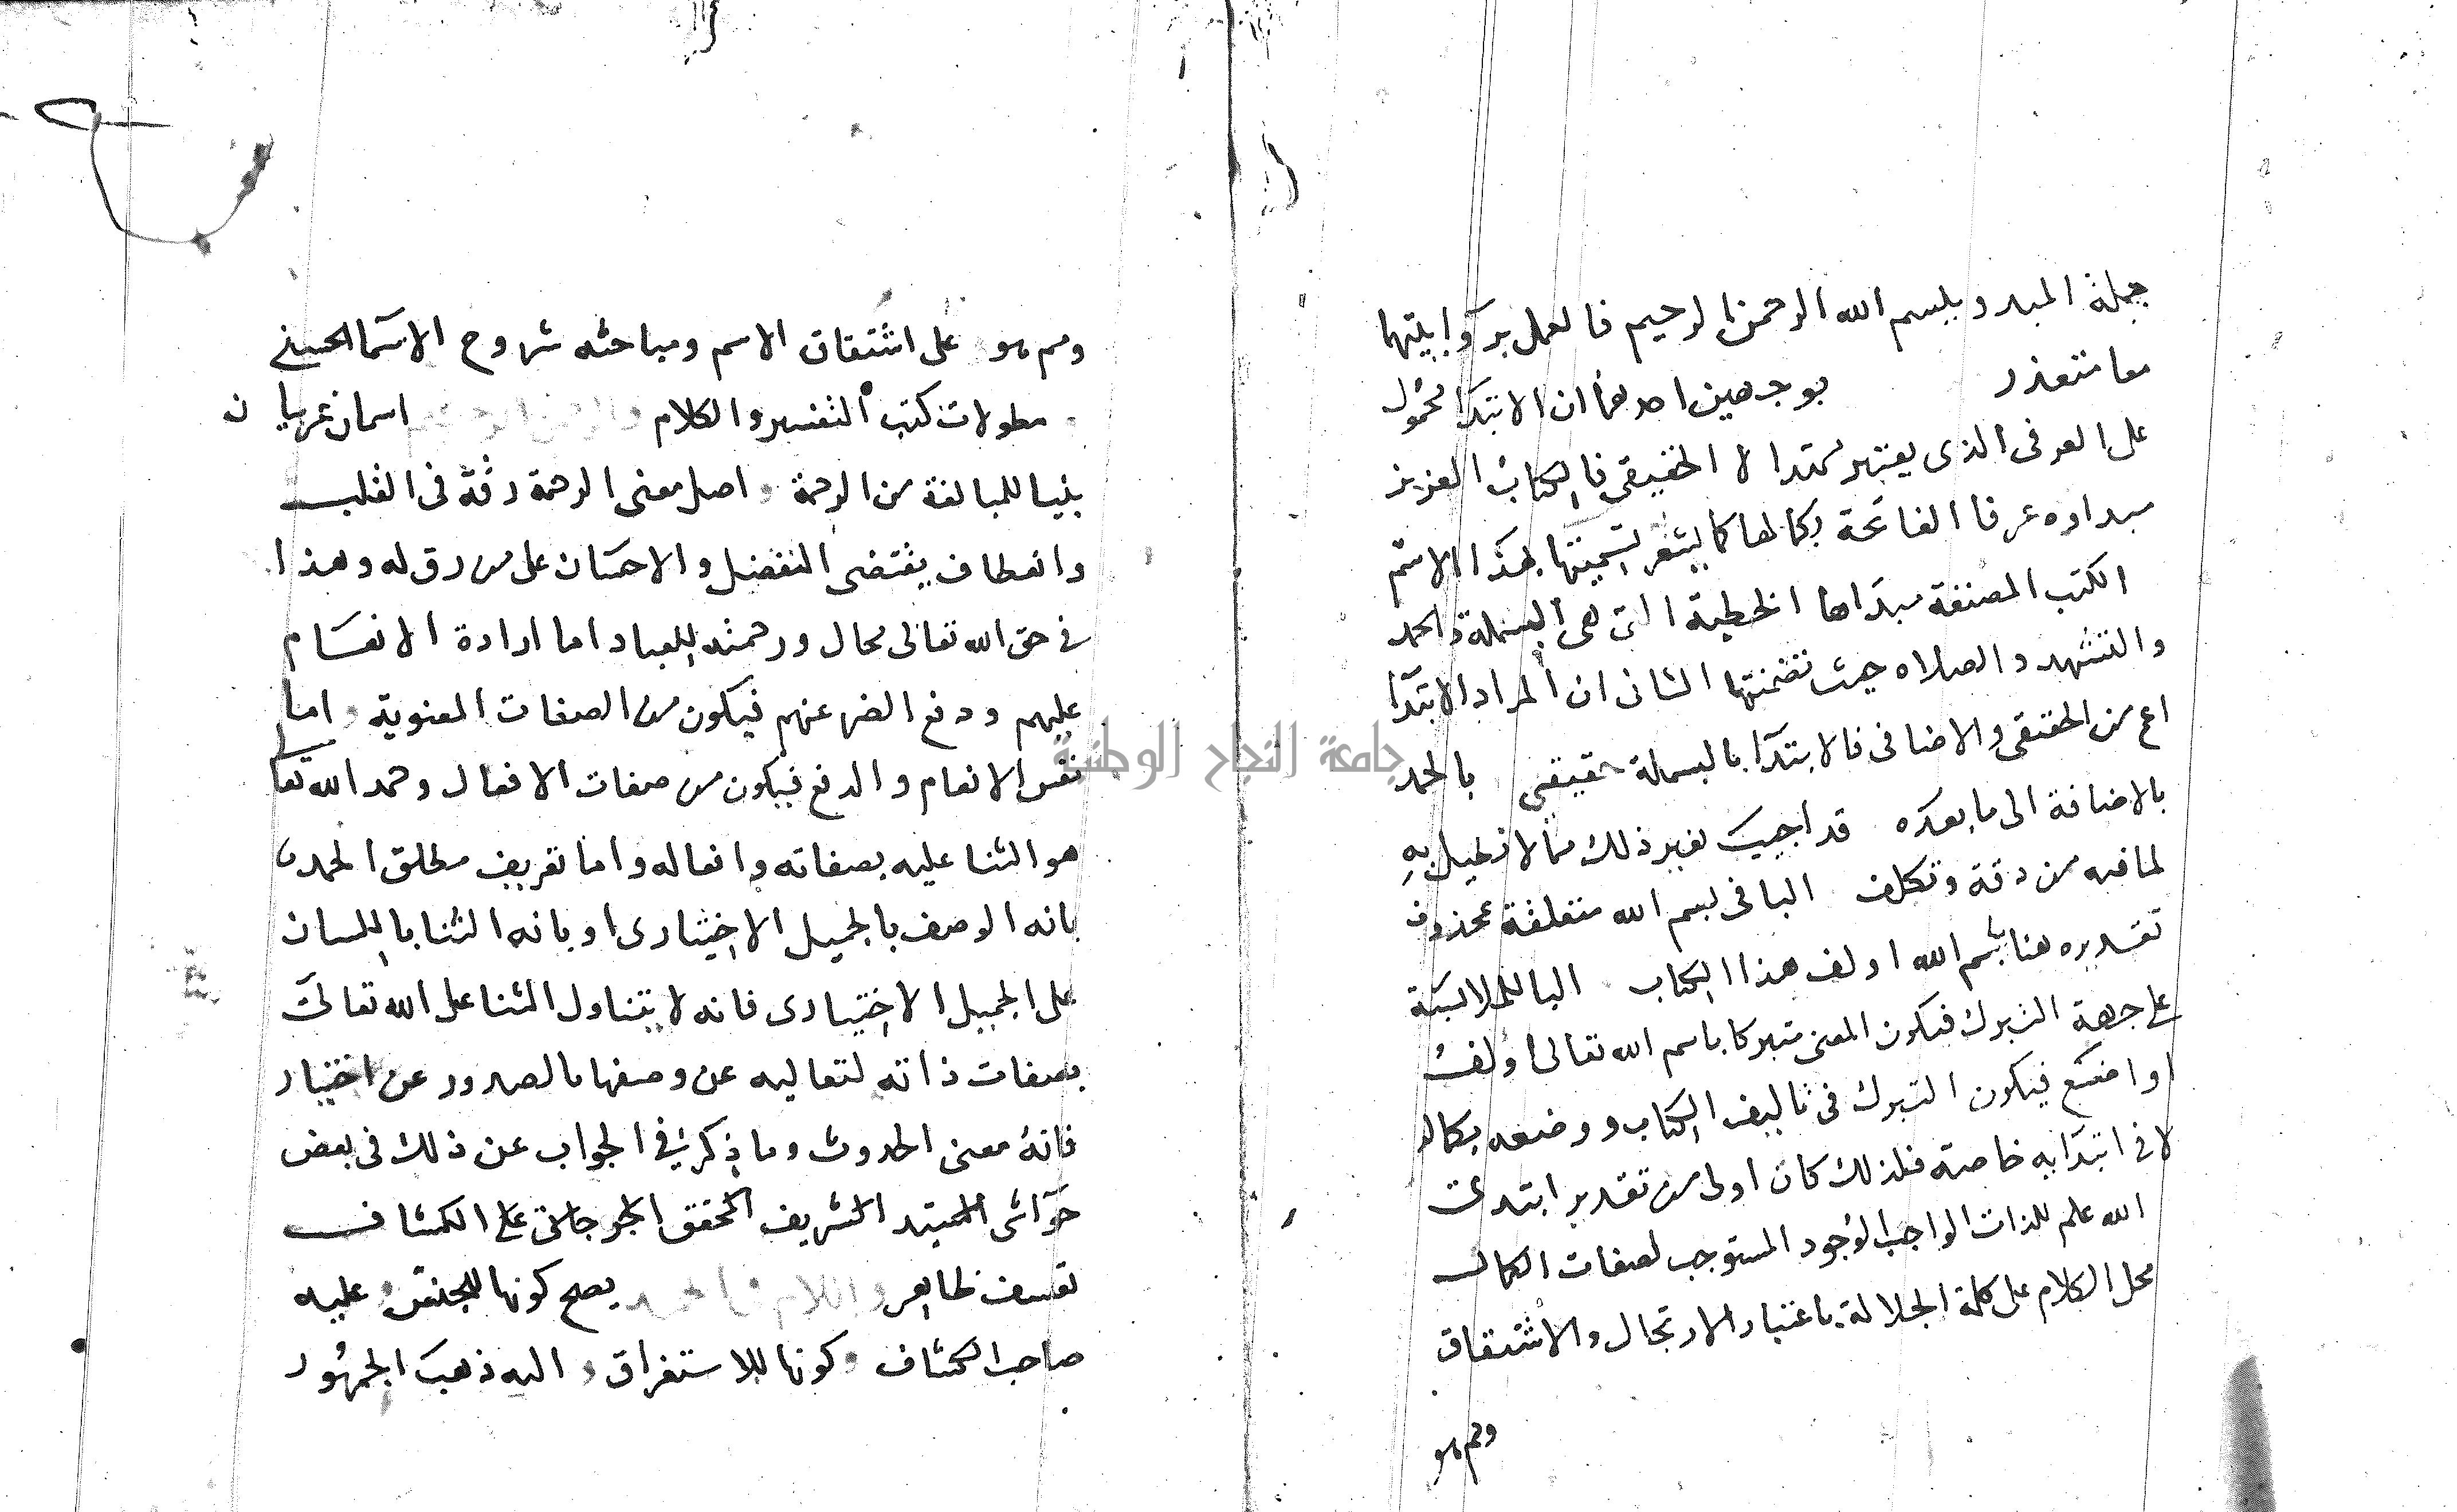 جملة المبدو ببسم الله الرحمن الرحيم فالعمل بروايتهما
معا متعذر بوجهين احدهما ان الابتدا محمول
على العرفى الذى يعتبر ممتدا لا الحقيقى فالكتاب العزيز
مبداوه عرفا الفاتحة بكمالها كما يشعر تسميتها بهذا الاسم
الكتب المصنفة مبداها الخطبة التى هى البسملة والحمد
والتشهد والصلاه حيث تضمنتها الثانى ان المراد الابتدا
اعم من الحقيقى والاضافى فالابتدا بالبسملة حقيقى بالحمد
بالاضافة الى ما بعده قد اجيب بغير ذلك مما لا نطيل به
لما فيه من دقة وتكلف البا فى بسم الله متعلقة بمحذوف
تقديره هنا بسم الله اولف هذا الكتاب البا للملابسة
على جهة التبرك فيكون المعنى متبركا باسم الله تعالى اولف
او اضع فيكون التبرك فى تاليف الكتاب ووضعه بكماله
لا فى ابتدا به خاصة فلذلك كان اولى من تقدير ابتدئ
الله علم للذات الواجب الوجود المستوجب لصفات الكمال
محل الكلام على كلمة الجلالة باعتبار الارتجال والاشتقاق
على اشتقاق الاسم ومباحثه شروح الاسما الحسنى
مطولات كتب التفسير والكلام اسمان عربيان
بنيا للمبالغة من الرحمة و اصل معنى الرحمة رقة فى القلب
وانعطاف يقتضى التفضل والاحسان على من رق له وهذا
فى حق الله تعالى محال ورحمته للعباد اما ارادة الانعام
عليهم ودفع الضر عنهم فيكون من الصفات المعنوية و اما
نفس الانعام والدفع فيكون من صفات الافعال وحمد الله تعالى
هو الثنا عليه بصفاته وافعاله واما تعريف مطلق الحمد
بانه الوصف بالجميل الاختيارى او بانه الثنا باللسان
على الجميل الاختيارى فانه لا يتناول الثنا على الله تعالى
بصفات ذاته لتعاليه عن وصفها بالصدور عن اختيار
فانه معنى الحدوث وما ذكر فى الجواب عن ذلك فى بعض
حواشى السيد الشريف المحقق الجرجانى على الكشاف
تعسف ظاهر و اللام فى الحمد يصح كونها للجنس و عليه
صاحب الكشاف و كونها للاستغراق و اليه ذهب الجمهور
جامعة النجاح الوطنية